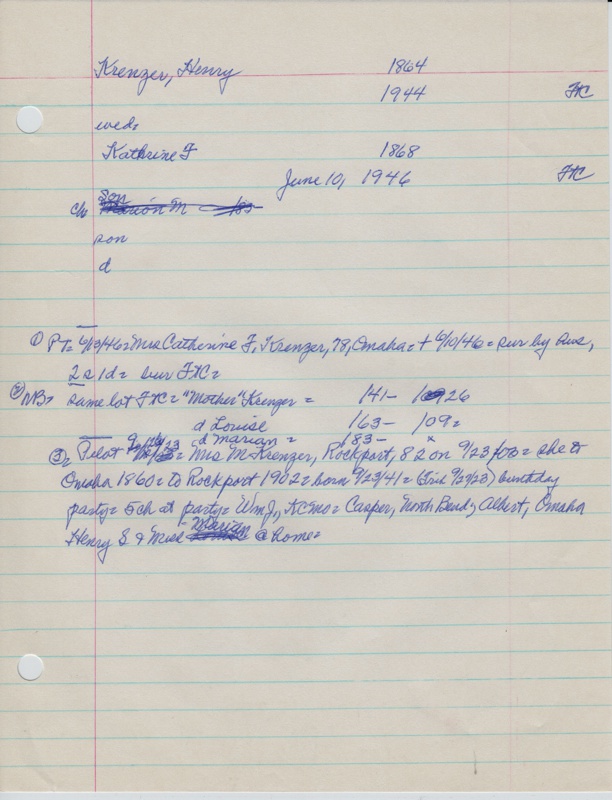 Krenzer, Henry 1864
1944 FXC
wed=
Kathrine F 1868
June 10, 1946 FXC
Son
c/o Marion M
son
d
① PT= 6/13/46= Mrs Catherine F. Krenzer, 78, Omaha= + 6/10/46= sur by hus,
2 s 1d= bur FXC=
② NB= same lot FXC= "Mother" Krenzer = 141- 1926
d Louise 163- 109=
d Marian = 183- x
③ Pilot = Mrs M Krenzer, Rockport, 82 on 9/23 = she to
Omaha 1860= to Rockport 1902= born 9/23/41= (Fris 9/27/23) birthday
party= 5ch at party= Wm J., KCMo= Casper, North Bend; Albert, Omaha
Henry S & Miss Marian @ home=